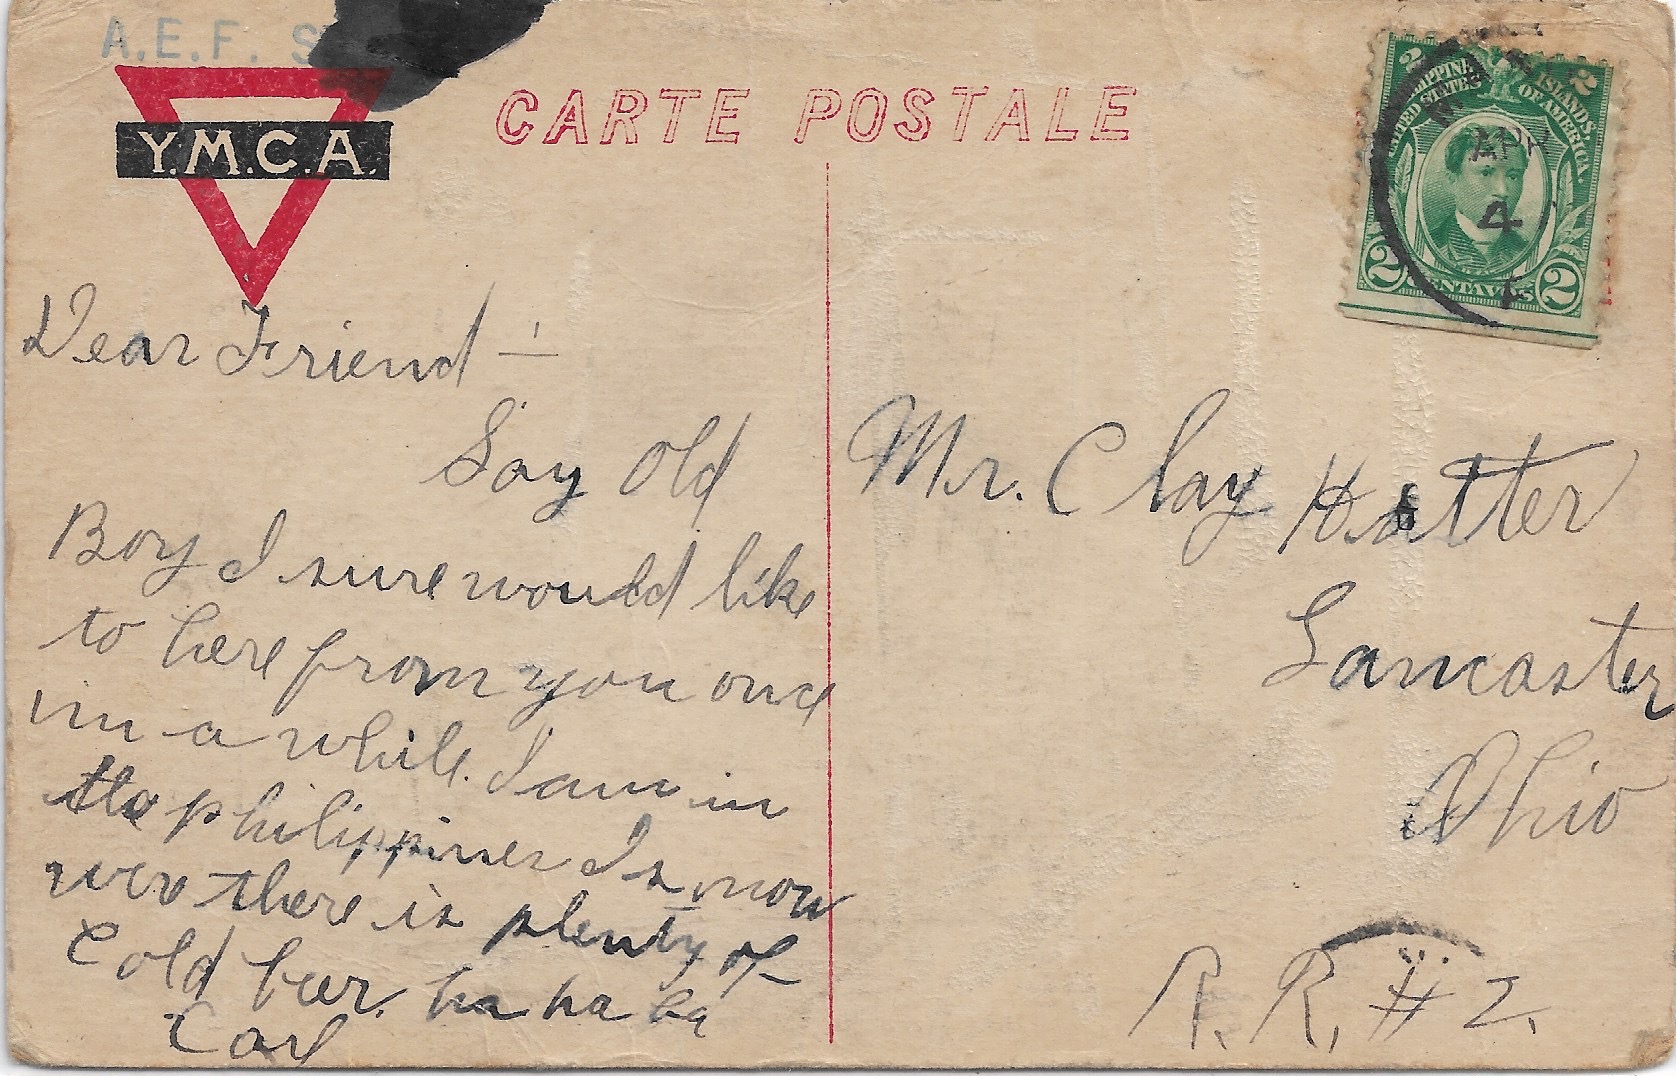 A.E.F. S
Y.M.C.A.
CARTE POSTALE
PHILIPPINE ISLANDS
UNITED STATES OF AMERICA
2 2
2 CENTAVOS 2
APR
4
Dear Friend –
Say Old
Boy I sure would like
to here from you once
in a while. I am in
the philippines Is now
were there is plenty of
Cold beer. ha ha ha
Carl
Mr. Clay Hatter
Lancaster
Ohio
R. R. # 2.